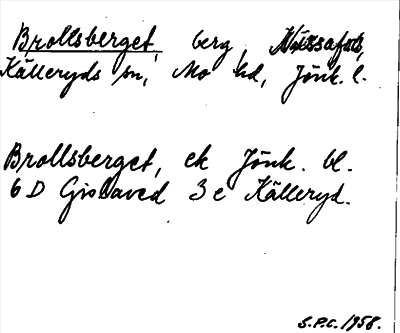 Brollsberget, berg,
Källeryds sn, Mo hd, Jönk. l.
Brollsberget, ek Jönk. bl.
6 D Gislaved 3 e Källeryd.
S.P.C. 1958.